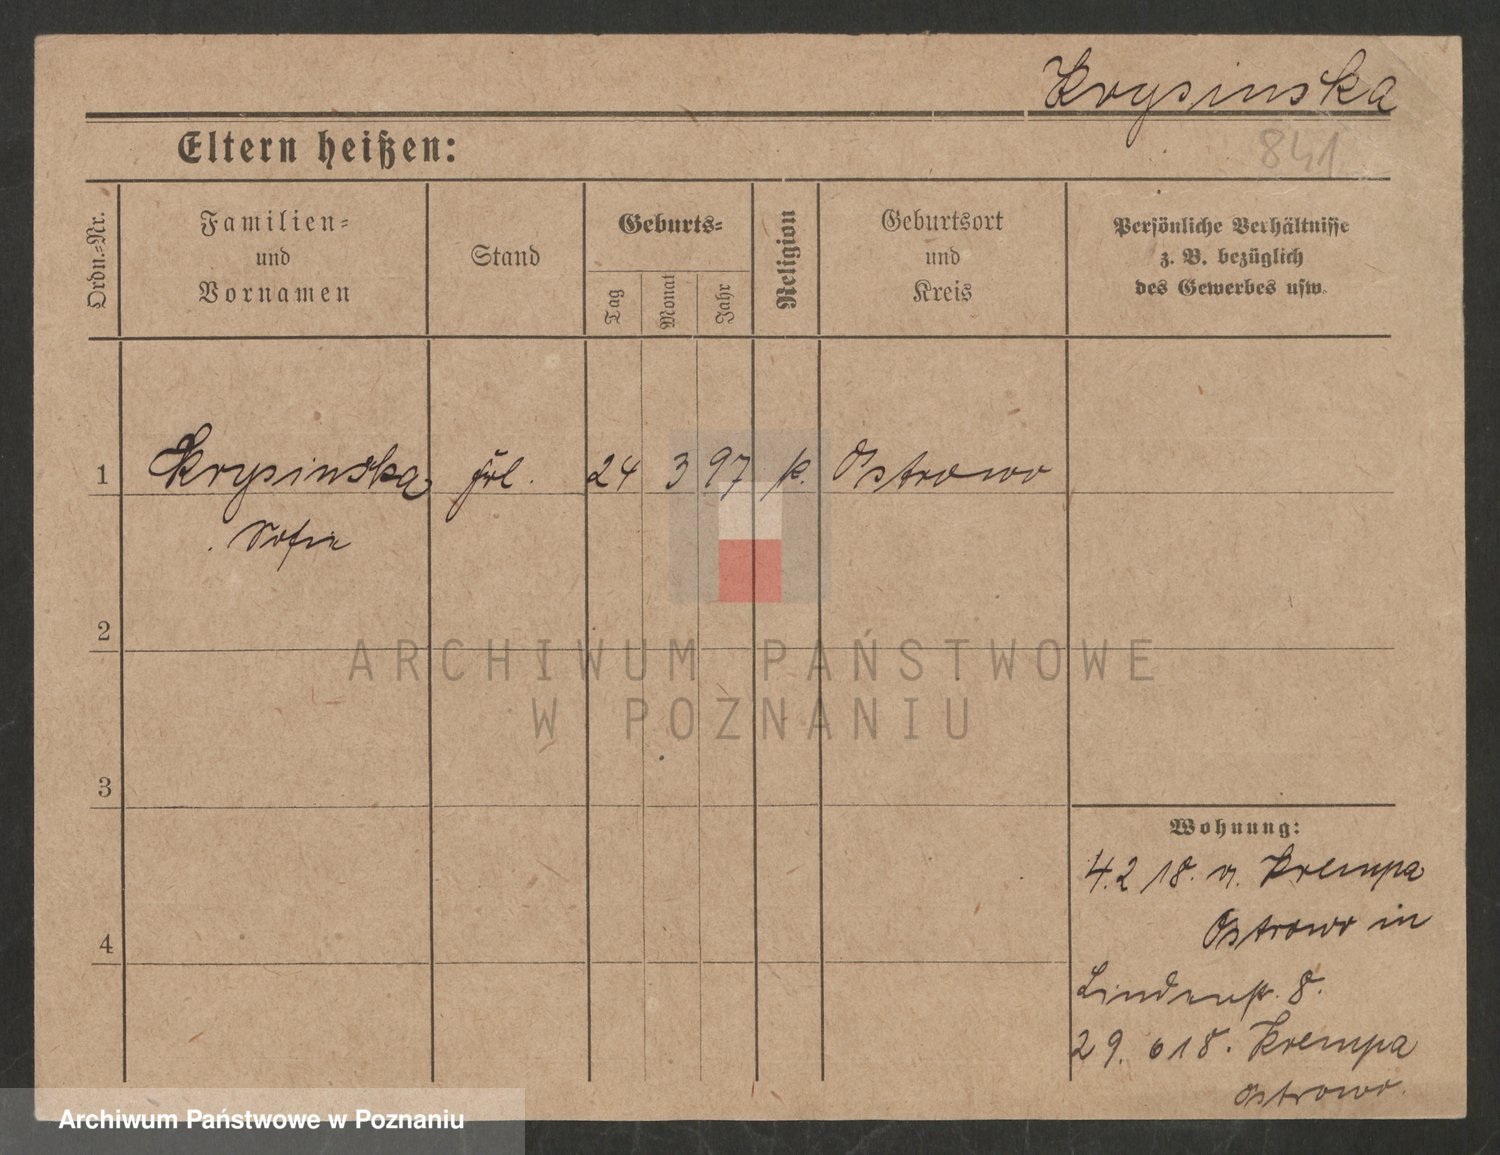 Krysinska
841
Eltern heißen:
Ordn.-Nr.
Familien-
und
Vornamen
Stand
Geburts-
Tag
Monat
Jahr
Religion
Geburtsort
und
Kreis
Persönliche Verhältnisse
z. B. bezüglich
des Gewerbes usw.
1 Krysinska frl. 24 3 97 k. Ostrowo
Sofie
2
ARCHIWUM PAŃSTWOWE
W POZNANIU
3
Wohnung:
4.2 18. v. Krempa
4
Ostrowo in
Lindenstr. 8.
29. 6 18. Krempa
Ostrowo.
Archiwum Państwowe w Poznaniu